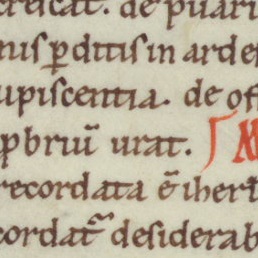 crescat. de puari
nis ꝑditis in arde
upiscentia. de of
ꝓbriũ urat.
recordata ẽ iherl̃
cordat᷑ desiderab